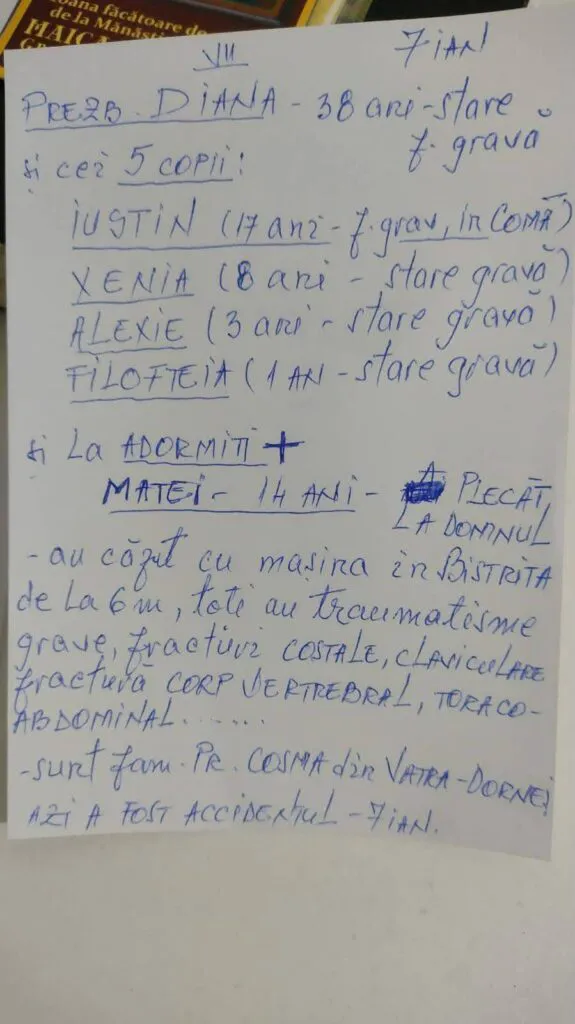 oana făcătoare de
de la Mănăsti
MAICA
VII
7 IAN
PREZB. DIANA - 38 ani - stare
f. gravă
și cei 5 COPII:
IUSTIN (17 ani - f. grav, în COMĂ)
XENIA (8 ani - stare gravă)
ALEXIE (3 ani - stare gravă)
FILOFTEIA (1 AN - stare gravă)
și La ADORMIȚI +
MATEI - 14 ANI - A PLECAT
LA DOMNUL
- au căzut cu mașina în BISTRITA
de La 6 m, toti au traumatisme
grave, fracturi COSTALE, CLAVICULARE
fractură CORP VERTREBRAL, TORACO-
ABDOMINAL......
- sunt fam. PR. COSMA din VATRA-DORNEI
AZI A FOST ACCIDENTUL - 7 IAN.